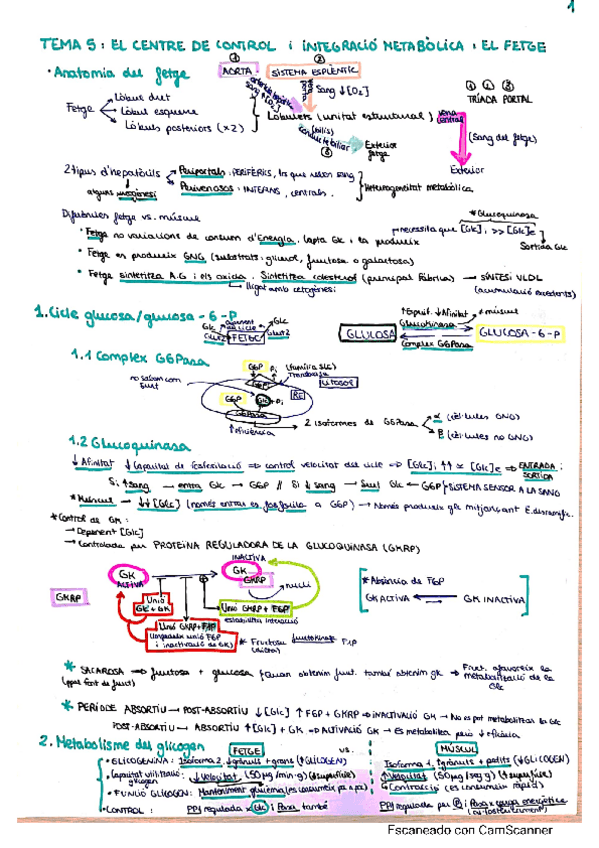 1
TEMA 5: EL CENTRE DE CONTROL i INTEGRACIÓ METABÒLICA: EL FETGE
· Anatomia del fetge
① AORTA
② SISTEMA ESPLÈNIC
Sang ↓[O₂]
① ② ③
TRÍADA PORTAL
Fetge
Lòbul dret
Lòbul esquerre
Lòbuls posteriors (x2)
Lòbulets (unitat estructural)
vena central
(Sang del fetge)
(bilis)
conducte biliar
③
Exterior fetge
Exterior
2 tipus d'hepatòcits
Periportals: PERIFÈRICS, los que reben sang
Perivenosos: INTERNS, centrals.
Heterogeneïtat metabòlica
Diferències fetge vs. múscul
* Glucoquinasa
· Fetge no variacions de consum d'Energia. Capta Glc i la produeix
necessita que [Glc]i >> [Glc]e
Sortida Glc
· Fetge es produeix GNG (substrats: glicerol, fructosa o galactosa)
· Fetge sintetitza A.G i els oxida. Sintetitza colesterol (principal fàbrica) → SÍNTESI VLDL
lligat amb cetogènesi
(acumulació excedents)
1. Cicle glucosa/glucosa-6-P
Glc
Glut2
FETGE
Glc
Glut2
↑Especif. ↓Afinitat
* múscul
Glucokinasa
GLUCOSA
GLUCOSA-6-P
Complex G6Pasa
1.1 Complex G6Pasa
no sabem com surt
G6P
Pi
(família SLC)
CITOSOL
RE
G6P
Glc + Pi
G6Pasa
↑eficiència
2 isoformes de G6Pasa
α (cèl·lules GNG)
β (cèl·lules no GNG)
1.2 Glucoquinasa
↓Afinitat ↓Capacitat de fosforilació ⇒ control velocitat del cicle ⇒ [Glc]i ↑↑ ≈ [Glc]e ⇒ ENTRADA i SORTIDA
Si ↑sang → entra Glc → G6P // Si ↓sang → Surt Glc ← G6P SISTEMA SENSOR A LA SANG
* Múscul → ↓↓[Glc] (només entrar es fosforila a G6P) → Només produeix glc mitjançant E. desramific.
* Control de GK:
→ Depenent [Glc]
→ Controlada per PROTEÏNA REGULADORA DE LA GLUCOQUINASA (GKRP)
GKRP
GK
ACTIVA
INACTIVA
GK
GKRP
nucli
Unió GRP + F6P
estabilitza interacció
* Absència de F6P
GK ACTIVA
GK INACTIVA
* Fructosa
fructokinasa
F1P
(dieta)
* SACAROSA ⇒ fructosa + glucosa
* PERÍODE ABSORTIU → POST-ABSORTIU ↓[Glc] ↑F6P + GKRP ⇒ INACTIVACIÓ GK → No es pot metabolitzar la Glc
POST-ABSORTIU → ABSORTIU ↑[Glc] + GK ⇒ ACTIVACIÓ GK → Es metabolitza però ↓eficiència
2. Metabolisme del glicogen
FETGE
vs.
MÚSCUL
· GLICOGENINA: Isoforma 2, ↓grànuls + grans (↑GLICOGEN)
Isoforma 1, ↑grànuls + petits (↓GLICOGEN)
· Capacitat utilització glicogen
↓Velocitat (50μg/min·g) (↓superfície)
↑Velocitat (50μg/seg·g) (↑superfície)
· FUNCIÓ GLICOGEN: Manteniment glucèmia (es consumeix poc a poc)
Contracció (es consumeix ràpid)
· CONTROL:
PP1 regulada x Glc i Fosa també
Escaneado con CamScanner